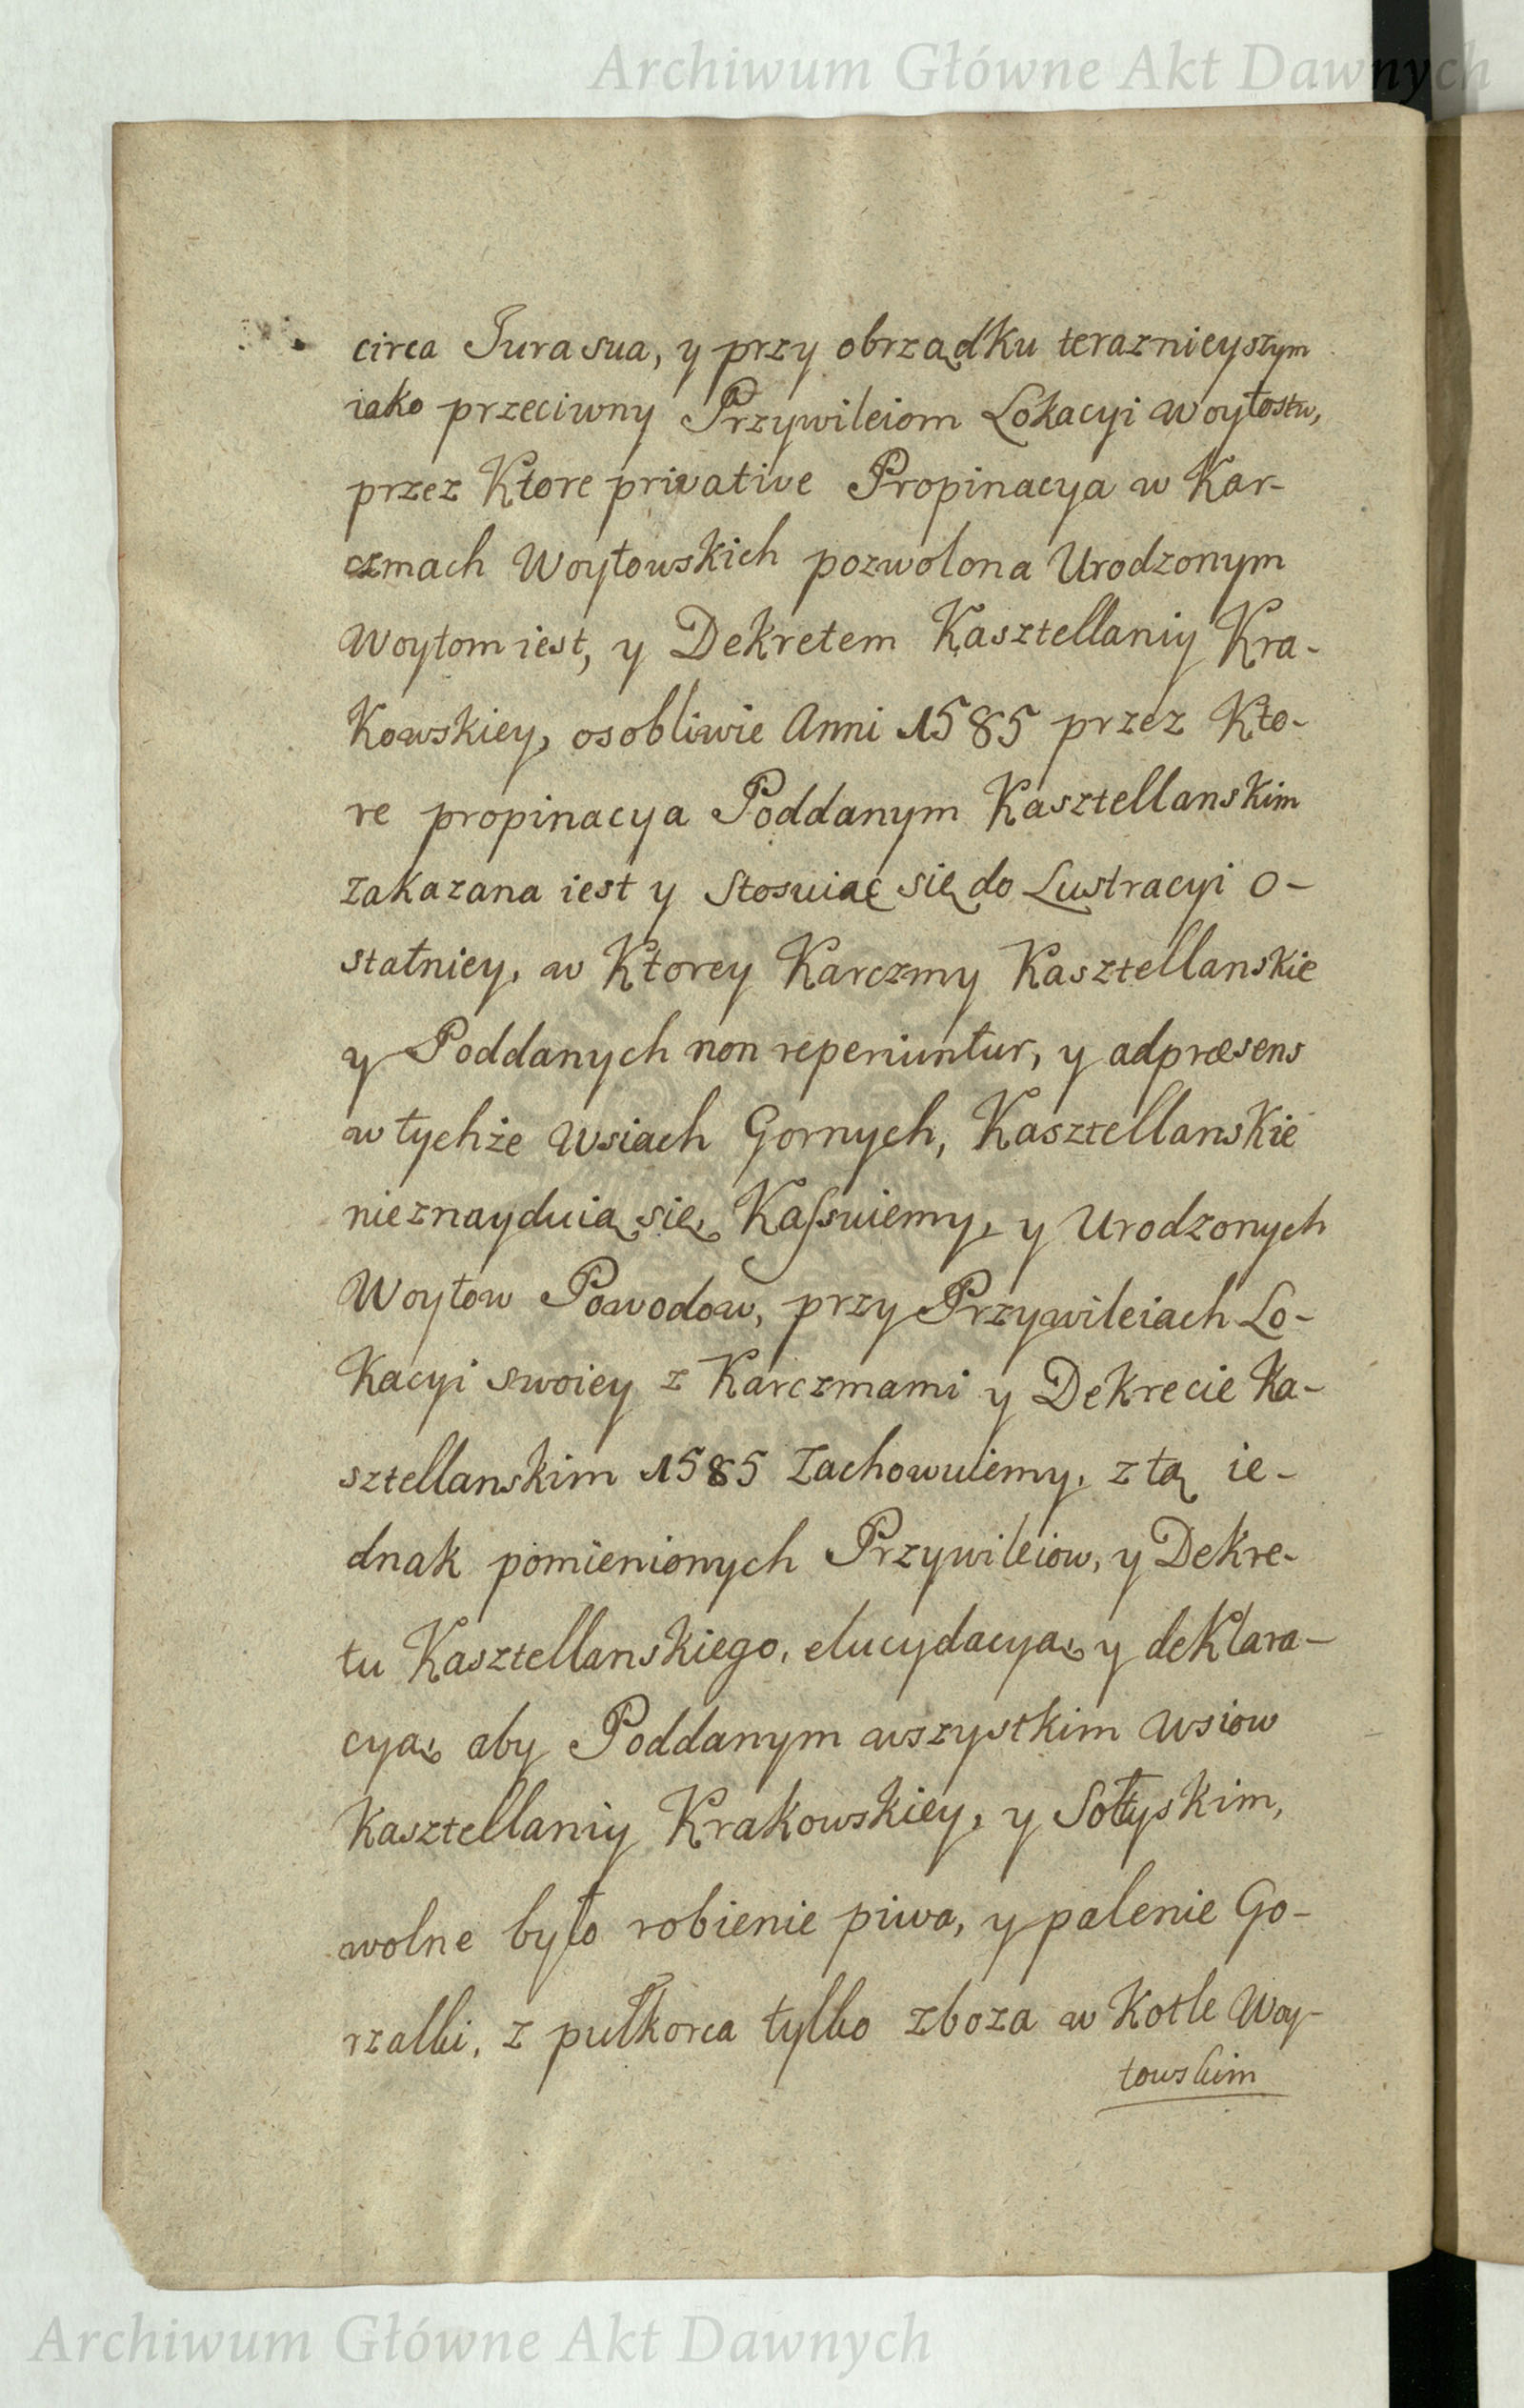 Archiwum Główne Akt Dawnych
circa Jura sua, y przy obrządku teraznieyszym
iako przeciwny Przywileiom Lokacyi Woytostw,
przez Ktore privative Propinacya w Kar-
czmach Woytowskich pozwolona Urodzonym
Woytom iest, y Dekretem Kasztellaniy Kra-
Kowskiey, osobliwie Anni 1585 przez Kto-
re propinacya Poddanym Kasztellanskim
zakazana iest y Stosuiąc się do Lustracyi o-
statniey, w Ktorey Karczmy Kasztellanskie
y Poddanych non reperiuntur, y adpræsens
w tychże Wsiach Gornych, Kasztellanskie
nieznayduią się, Kassuiemy, y Urodzonych
Woytow Powodow, przy Przywileiach Lo-
Kacyi swoiey z Karczmami y Dekrecie Ka-
sztellanskim 1585 Zachowuiemy, z tą ie-
dnak pomienionych Przywileiow, y Dekre-
tu Kasztellanskiego, elucydacyą, y deklara-
cyą, aby Poddanym wszystkim Wsiow
Kasztellaniy Krakowskiey, y Sołtyskim,
wolne było robienie piwa, y palenie Go-
rzalki, z pułkorca tylko zboza w Kotle Woy-
towskim
Archiwum Główne Akt Dawnych